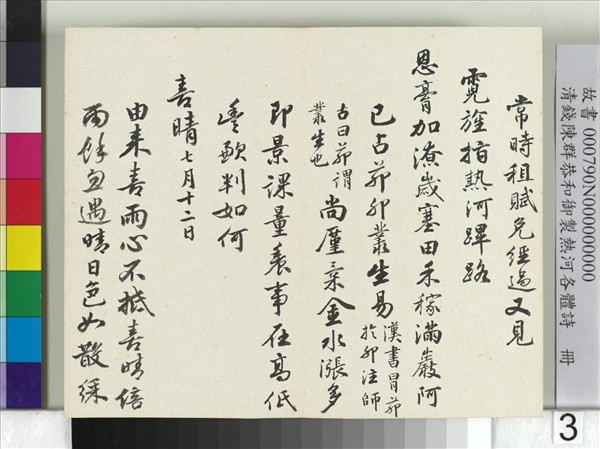 常時租賦免經過又見
霓旌指熱河蹕路
恩膏加潦歲塞田禾稼滿巖阿
已占茆卯叢生易漢書冒茆
於卯注師
古曰茆謂
叢生也尚厪金水漲多
即景課量農事在高低
豐歉判如何
喜晴七月十二日
由来喜雨心不抵喜晴倍
雨餘忽遇晴日色如散綵
故書 000790N000000000
清錢陳群恭和御製熱河各體詩 冊
3